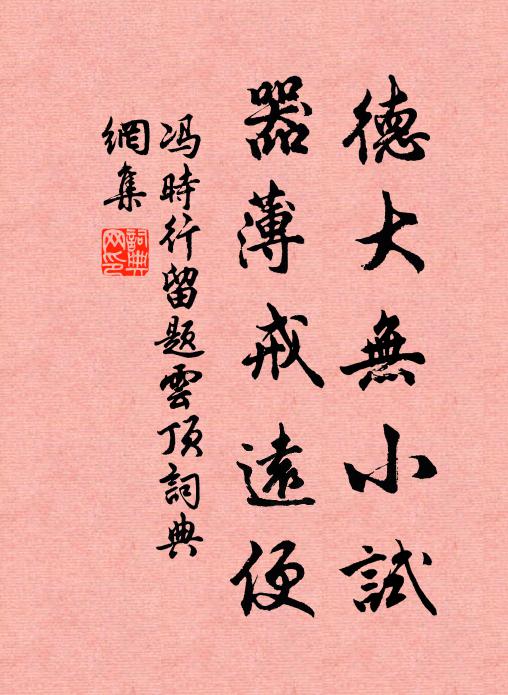 德大無小試
器薄戒遠便
冯時行留題雲頂詞典
網集
詞典
网印